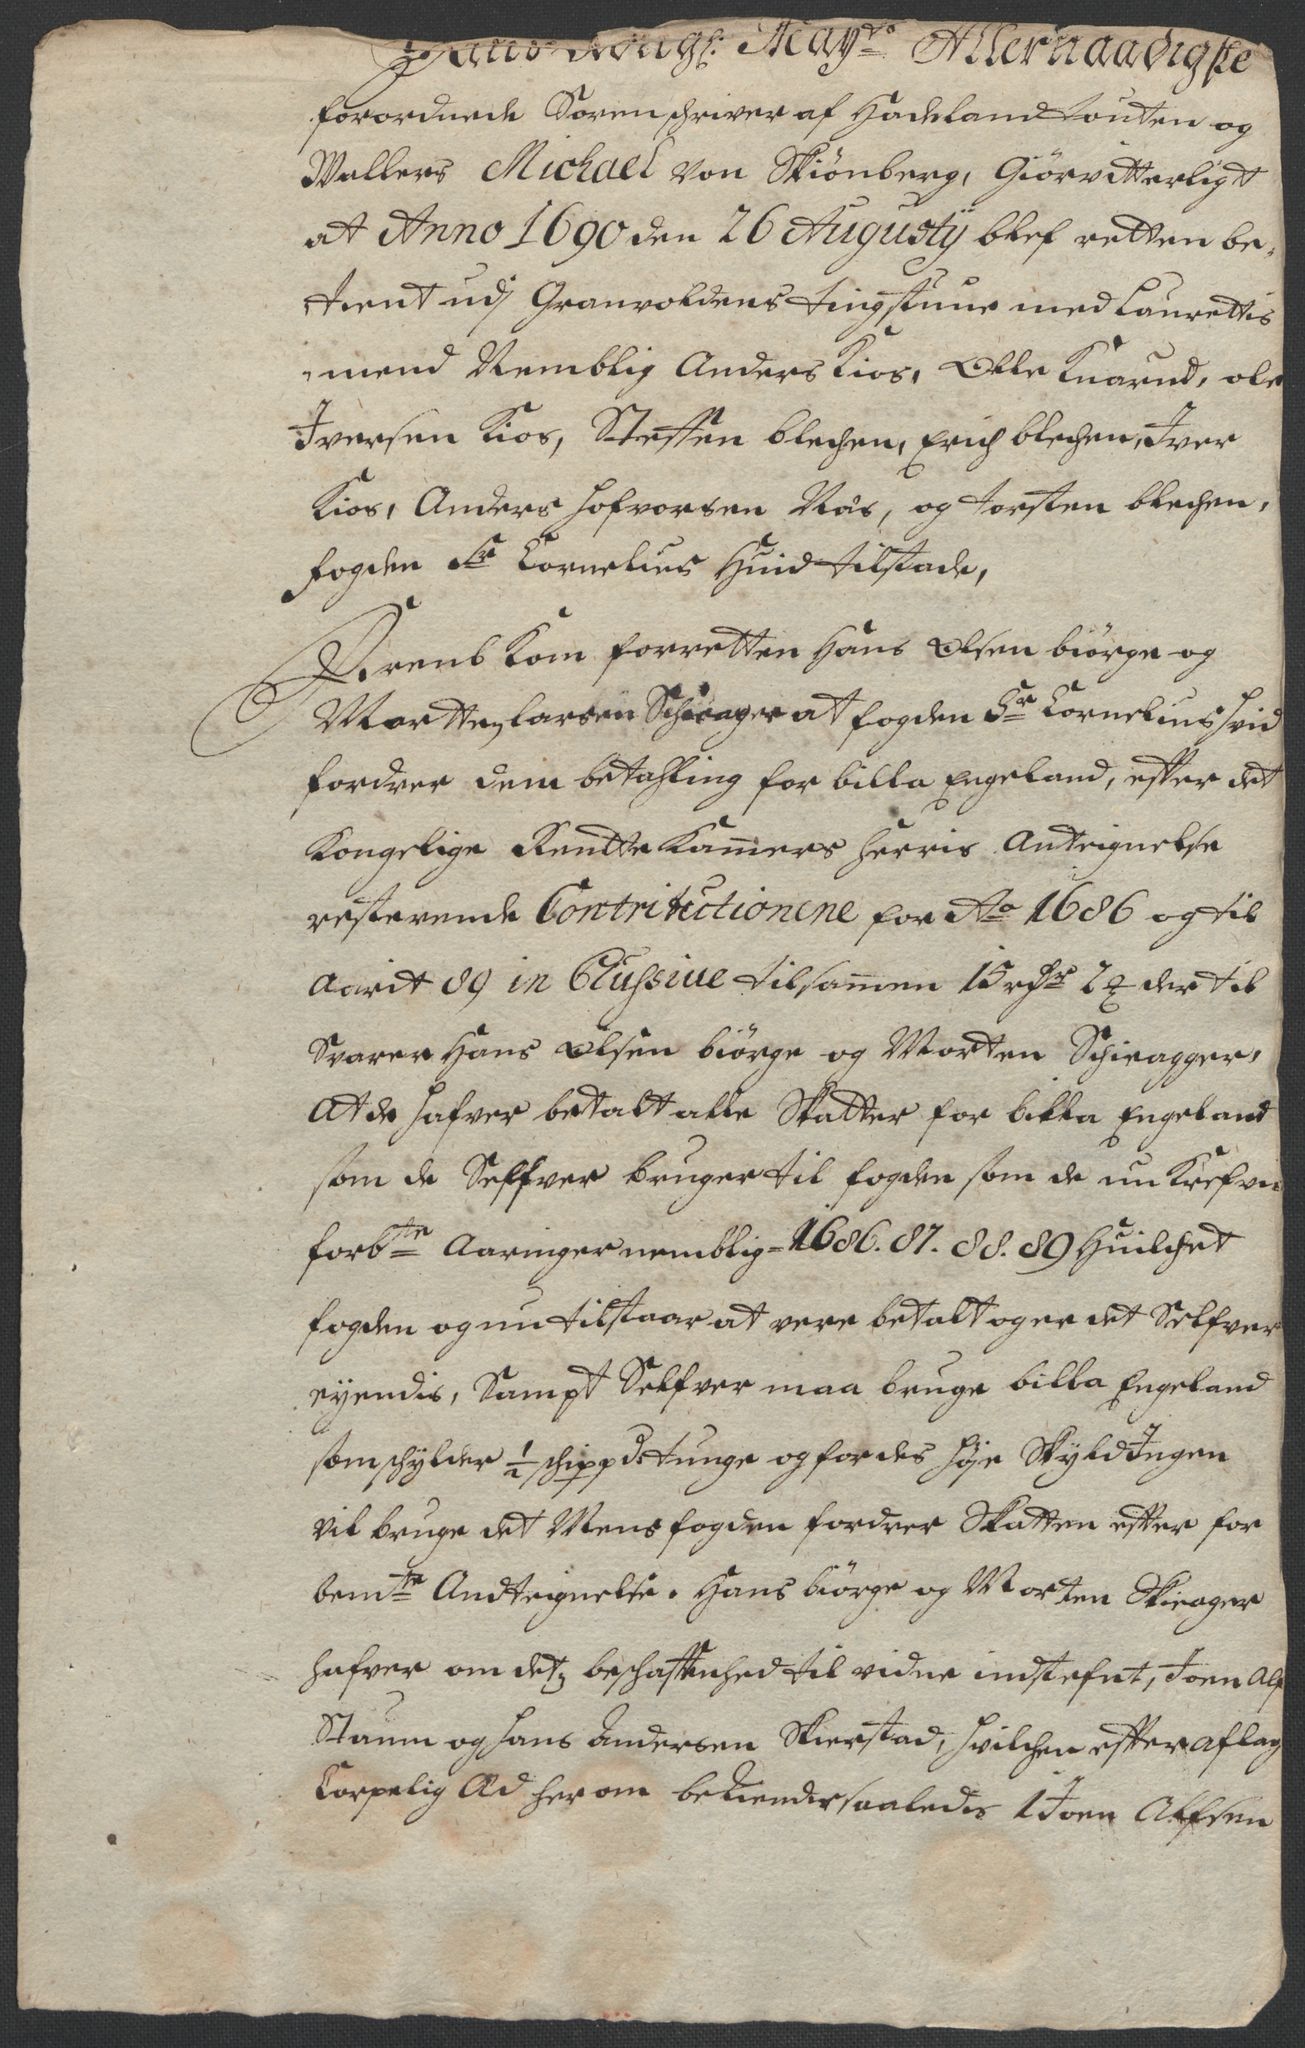 Hans Kongl: Mayts Allernaadigste
forordnede Sorenschriver af Hadeland Touten og
Wallers Michael von Skiönberg, Giör vitterligt
at Anno 1690 den 26 Augustij blef retten be-
tient udj Granvoldens tingstuue med Laurettis
mend Nemblig Anders Kios, Olle Knarud, ole
Iversen Kios, Steffen blechen, Erich blechen, Iver
Kios, Anders hofvorsen Næs, og torsten blechen,
fogden Sr Cornelius Huid tilstade,
kom for retten Hans Olsen biörge og
Morten larsen Schieager at fogden Sr Cornelius hvid
fordrer dem betahling for billa Engeland, effter det
Kongelige Rendte Kamers herris Andteignelse
resterende Contributionene for Ao 1686 og til
Aarit 89 in Clusive tilsamen 15 rdr 2 der til
Svarer Hans Olsen biörge og Morten Schieagger,
At de hafver betalt alle Skatter for billa Engeland
som de Selfver bruger til fogden som de nu Krefvis
forbte Aaringer nemblig 1686. 87. 88. 89 Huilchet
fogden og nu tilstaar at vere betalt og er det Selfver
eyendis, Sampt Selfver maa bruge billa Engeland
som schylder 1/2 schippd: tunge og for des høje Skyld Ingen
vil bruge det Mens fogden fordrer Skatten effter for
bemte Andteignelse. Hans biörge og Morten Skieager
hafver om detz beschaffenhed til vidne indstefnt, Joen Alf
Staum og hans Andersen Skierstad, hvilchen effter aflag
Corpelig Æd her om bekiender saaledis 1 Joen Alfsen